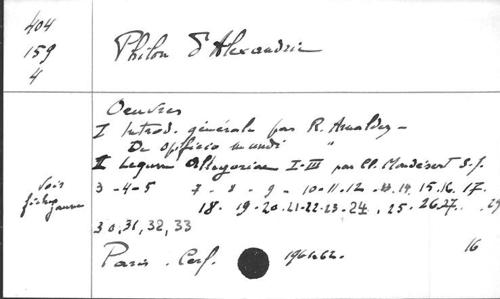 404
159
4
Philon d'Alexandrie
Oeuvres
I Introd. générale par R. Arnaldez –
De opificio mundi "
II Legum Allegoriae I-III par Cl. Mondésert S.J.
3 - 4 - 5 7 - 8 - 9 - 10 - 11 - 12 - 13. 14. 15. 16. 17.
Voir
18. 19 - 20. 21 - 22 - 23 - 24. 25. 26. 27. 29
30, 31, 32, 33
Paris. Cerf. 1961-62. 16